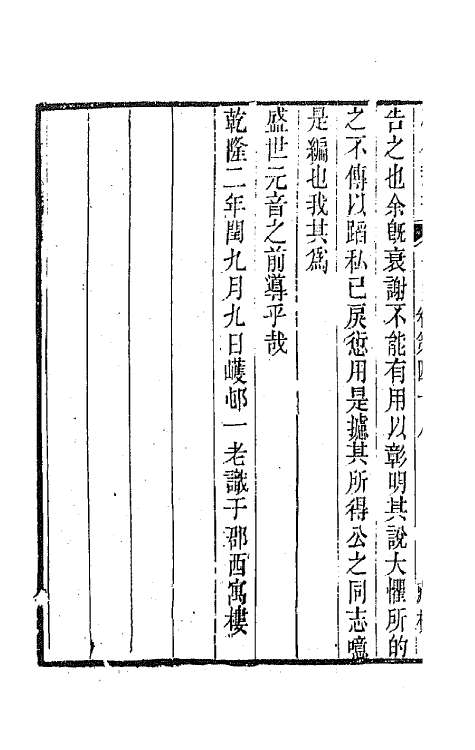 告之也余旣衰謝不能有用以彰明其說大懼所的
之不傳以蹈私已戾愆用是攄其所得公之同志噫
是編也我其爲
盛世元音之前導乎哉
乾隆二年閏九月九日巏邨一老識于郡西寓樓